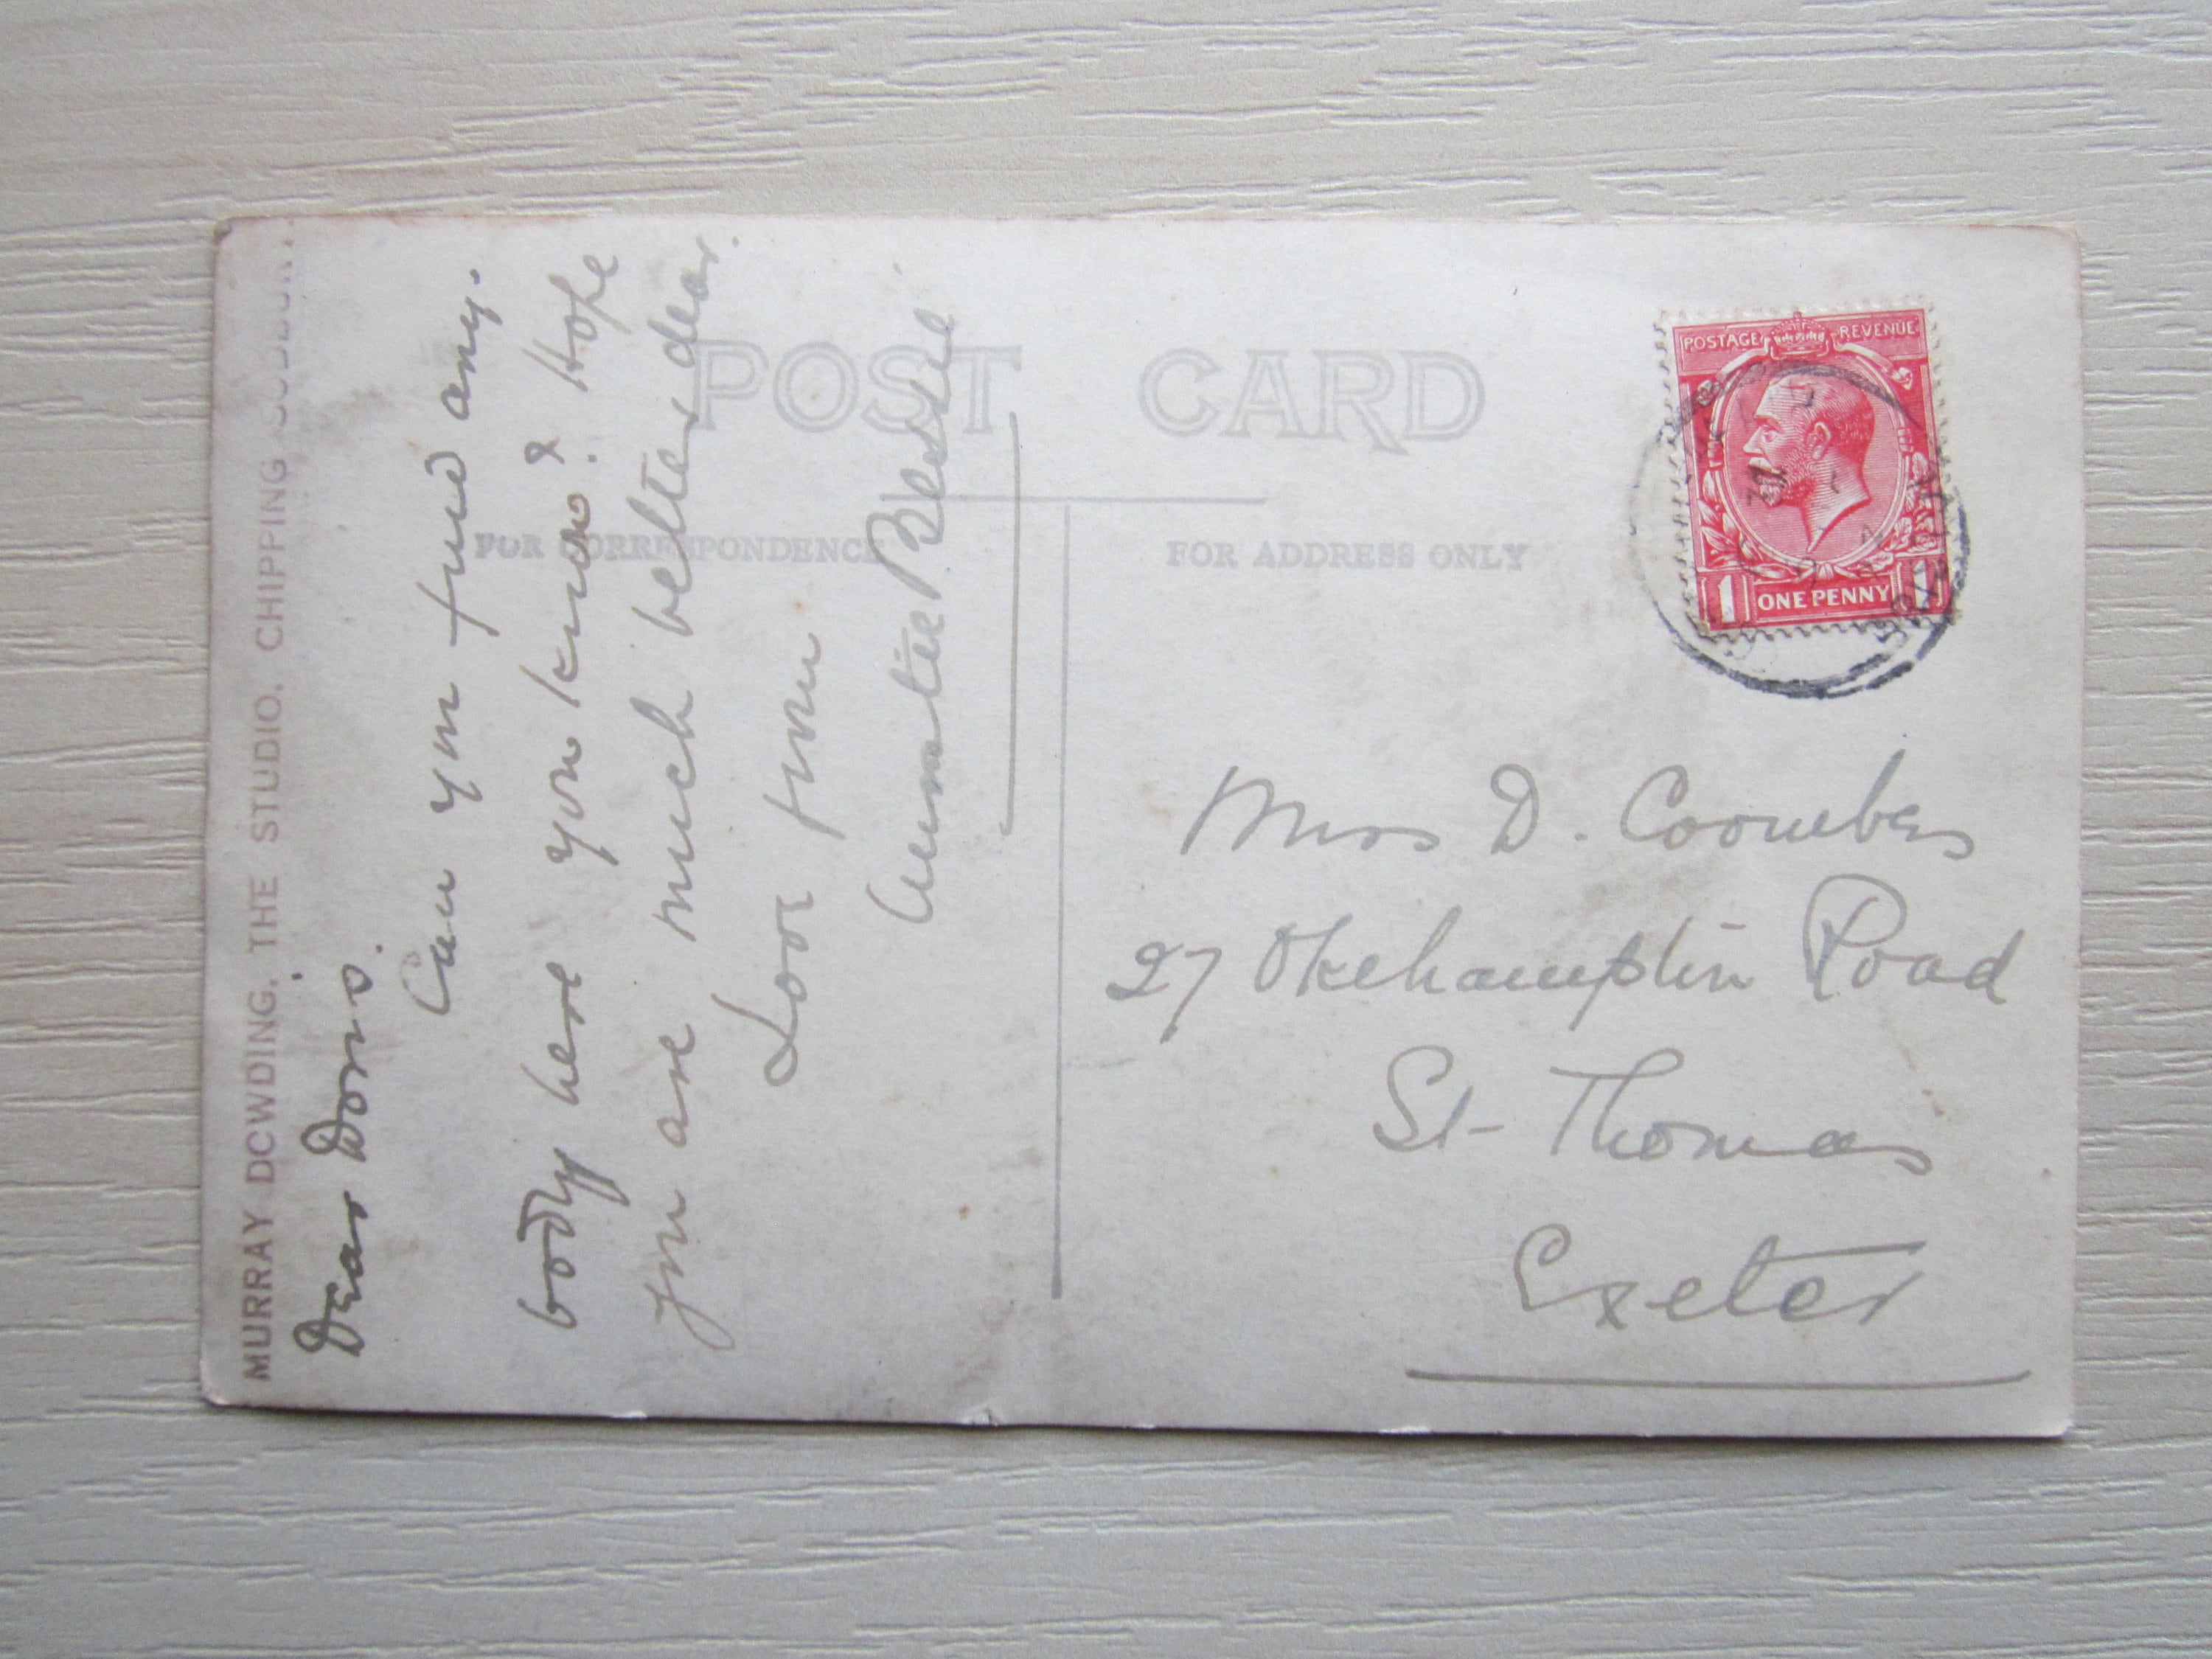 MURRAY DOWDING. THE STUDIO. CHIPPING SODBURY.
POST CARD
FOR CORRESPONDENCE
FOR ADDRESS ONLY
Dear Doris.
Can you find any.
body here you know? Hope
you are much better dear.
Love from
Auntie Bessie
POSTAGE REVENUE
1 ONE PENNY 1
Miss D. Coombes
27 Okehampton Road
St Thomas
Exeter